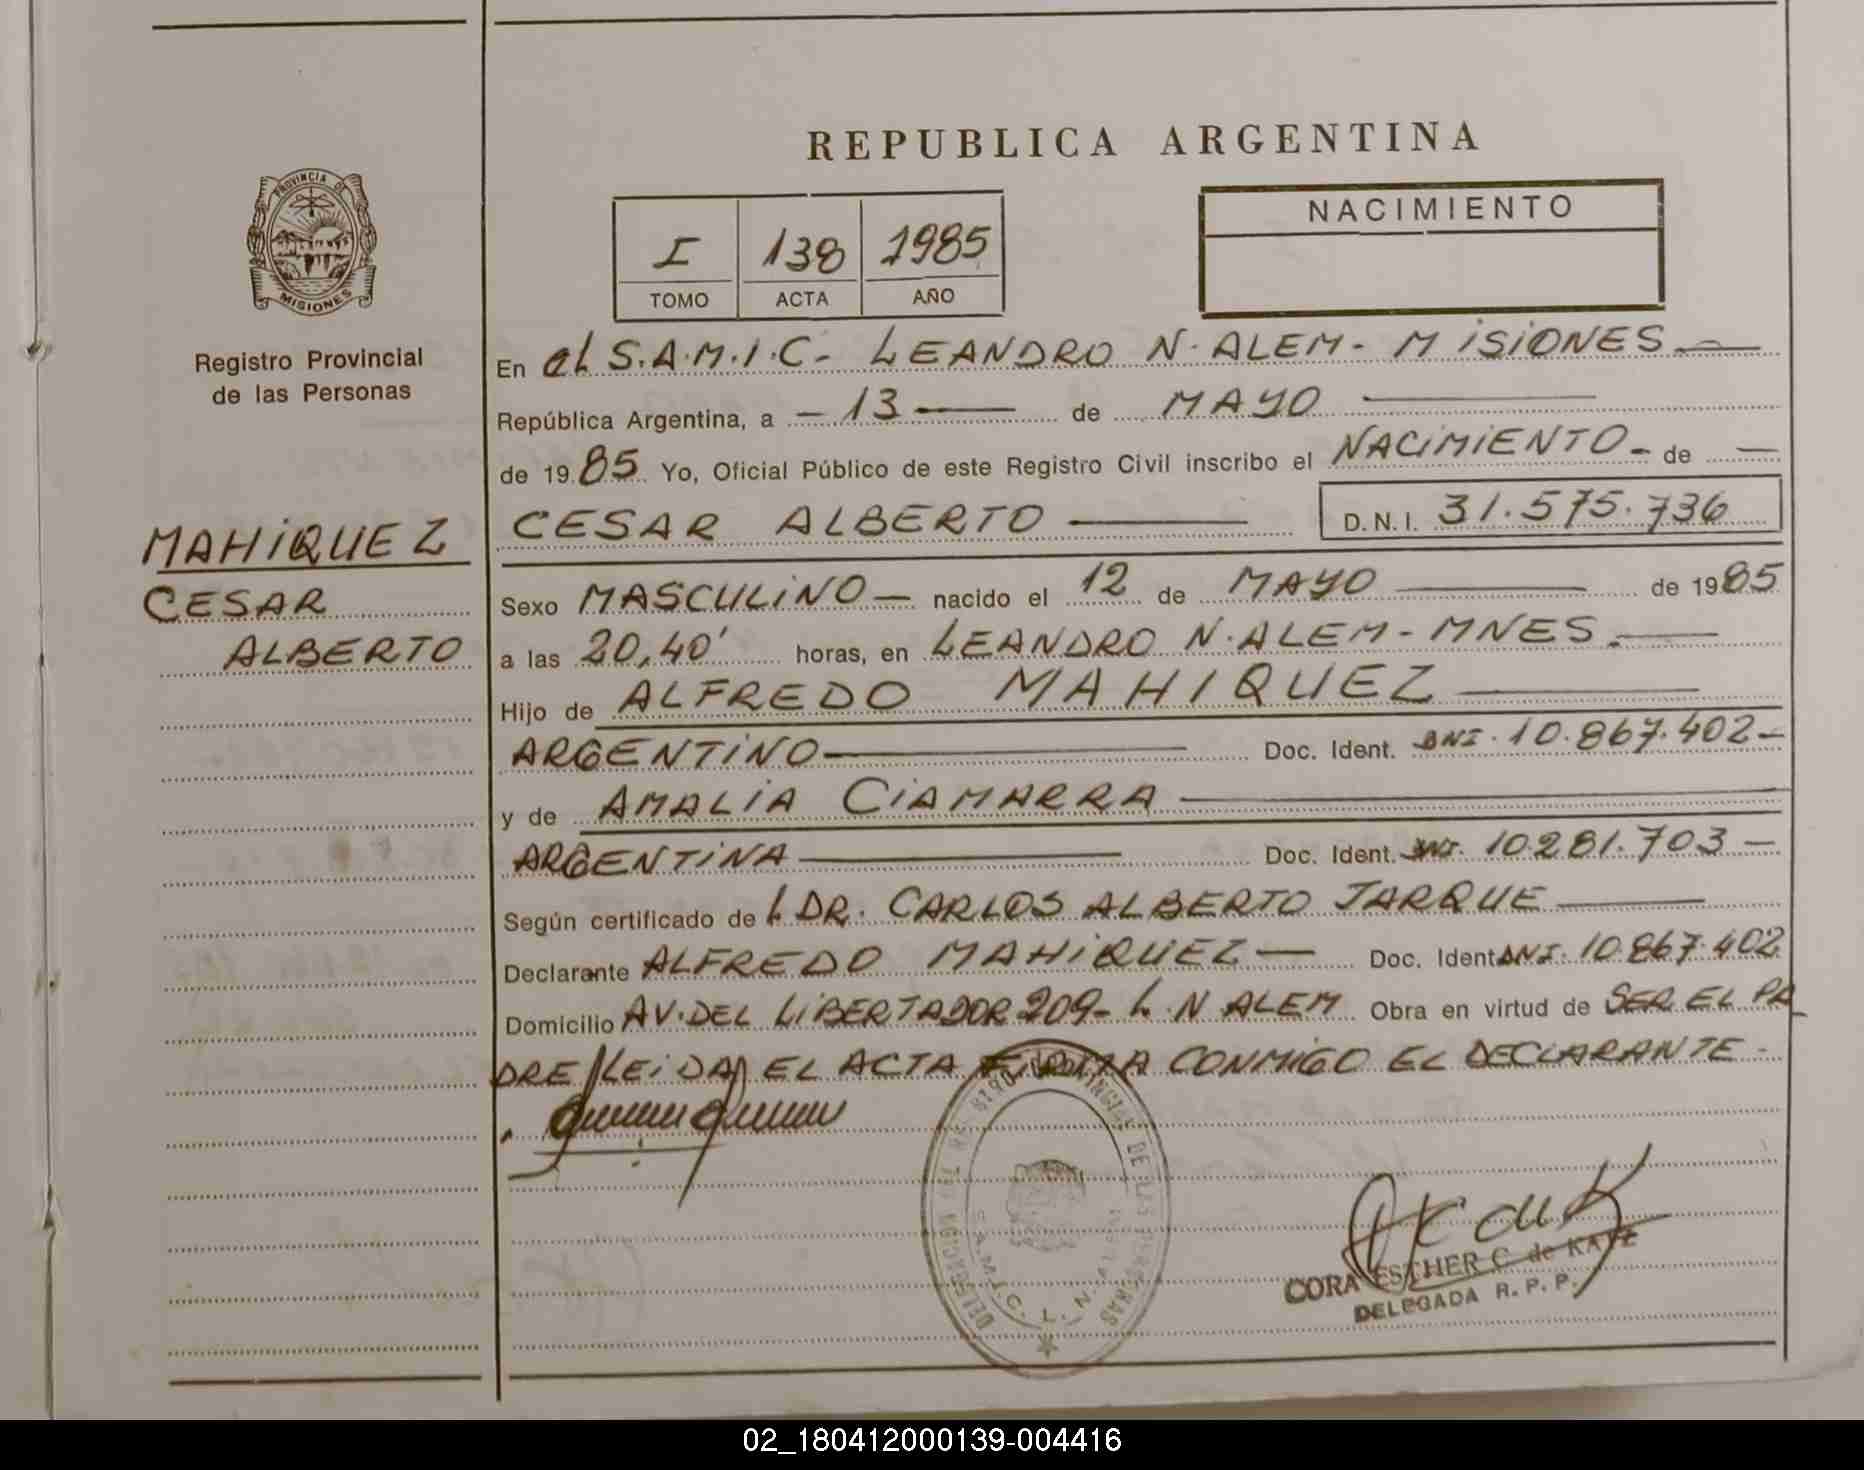 REPUBLICA ARGENTINA
PROVINCIA DE
MISIONES
Registro Provincial
de las Personas
I 138 1985
TOMO ACTA AÑO
NACIMIENTO
En el S.A.M.I.C- LEANDRO N. ALEM- MISIONES
República Argentina, a -13- de MAYO
de 1985 Yo, Oficial Público de este Registro Civil inscribo el NACIMIENTO- de
MAHIQUEZ
CESAR
ALBERTO
CESAR ALBERTO D.N.I. 31.575.736
Sexo MASCULINO- nacido el 12 de MAYO de 1985
a las 20,40' horas, en LEANDRO N. ALEM- MNES.
Hijo de ALFREDO MAHIQUEZ
ARGENTINO Doc. Ident. DNI. 10.867.402-
y de AMALIA CIAMARRA
ARGENTINA Doc. Ident. DNI. 10.281.703-
Según certificado de DR. CARLOS ALBERTO JARQUE
Declarante ALFREDO MAHIQUEZ- Doc. Ident DNI. 10.867.402
Domicilio AV. DEL LIBERTADOR 209- L. N ALEM Obra en virtud de SER EL PA
DRE/LEIDA EL ACTA FIRMA CONMIGO EL DECLARANTE-
DE LAS PERSONAS
S.A.M.I.C. L. N. ALEM
CORA ESTHER C. de KATZ
DELEGADA R. P. P.
02_180412000139-004416